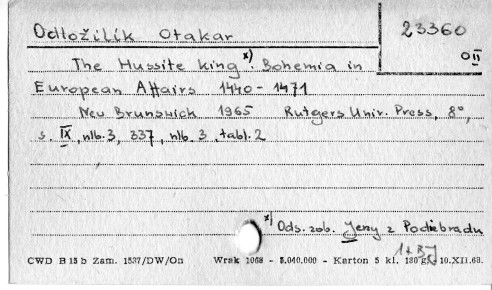 Odložilík Otakar
23360
OII
The Hussite King x) Bohemia in
European Affairs 1440-1471
New Brunswick 1965 Rutgers Univ. Press, 8°,
s. IX, nlb. 3, 337, nlb. 3, tabl. 2
x) Ods. zob. Jerzy z Podiebradu
CWD B 15 b Zam. 1537/DW/On Wrak 1068 - 5.040.000 - Karton 5 kl. 180 g. 10.XII.68.